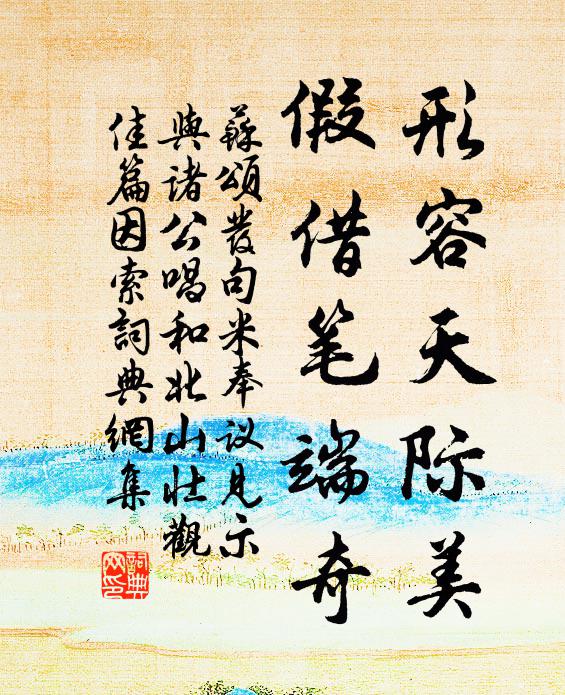 形容天际美
假借笔端奇
蘇頌发句米奉议见示
與诸公唱和北山壮觀
佳篇因索詞典網集
詞典